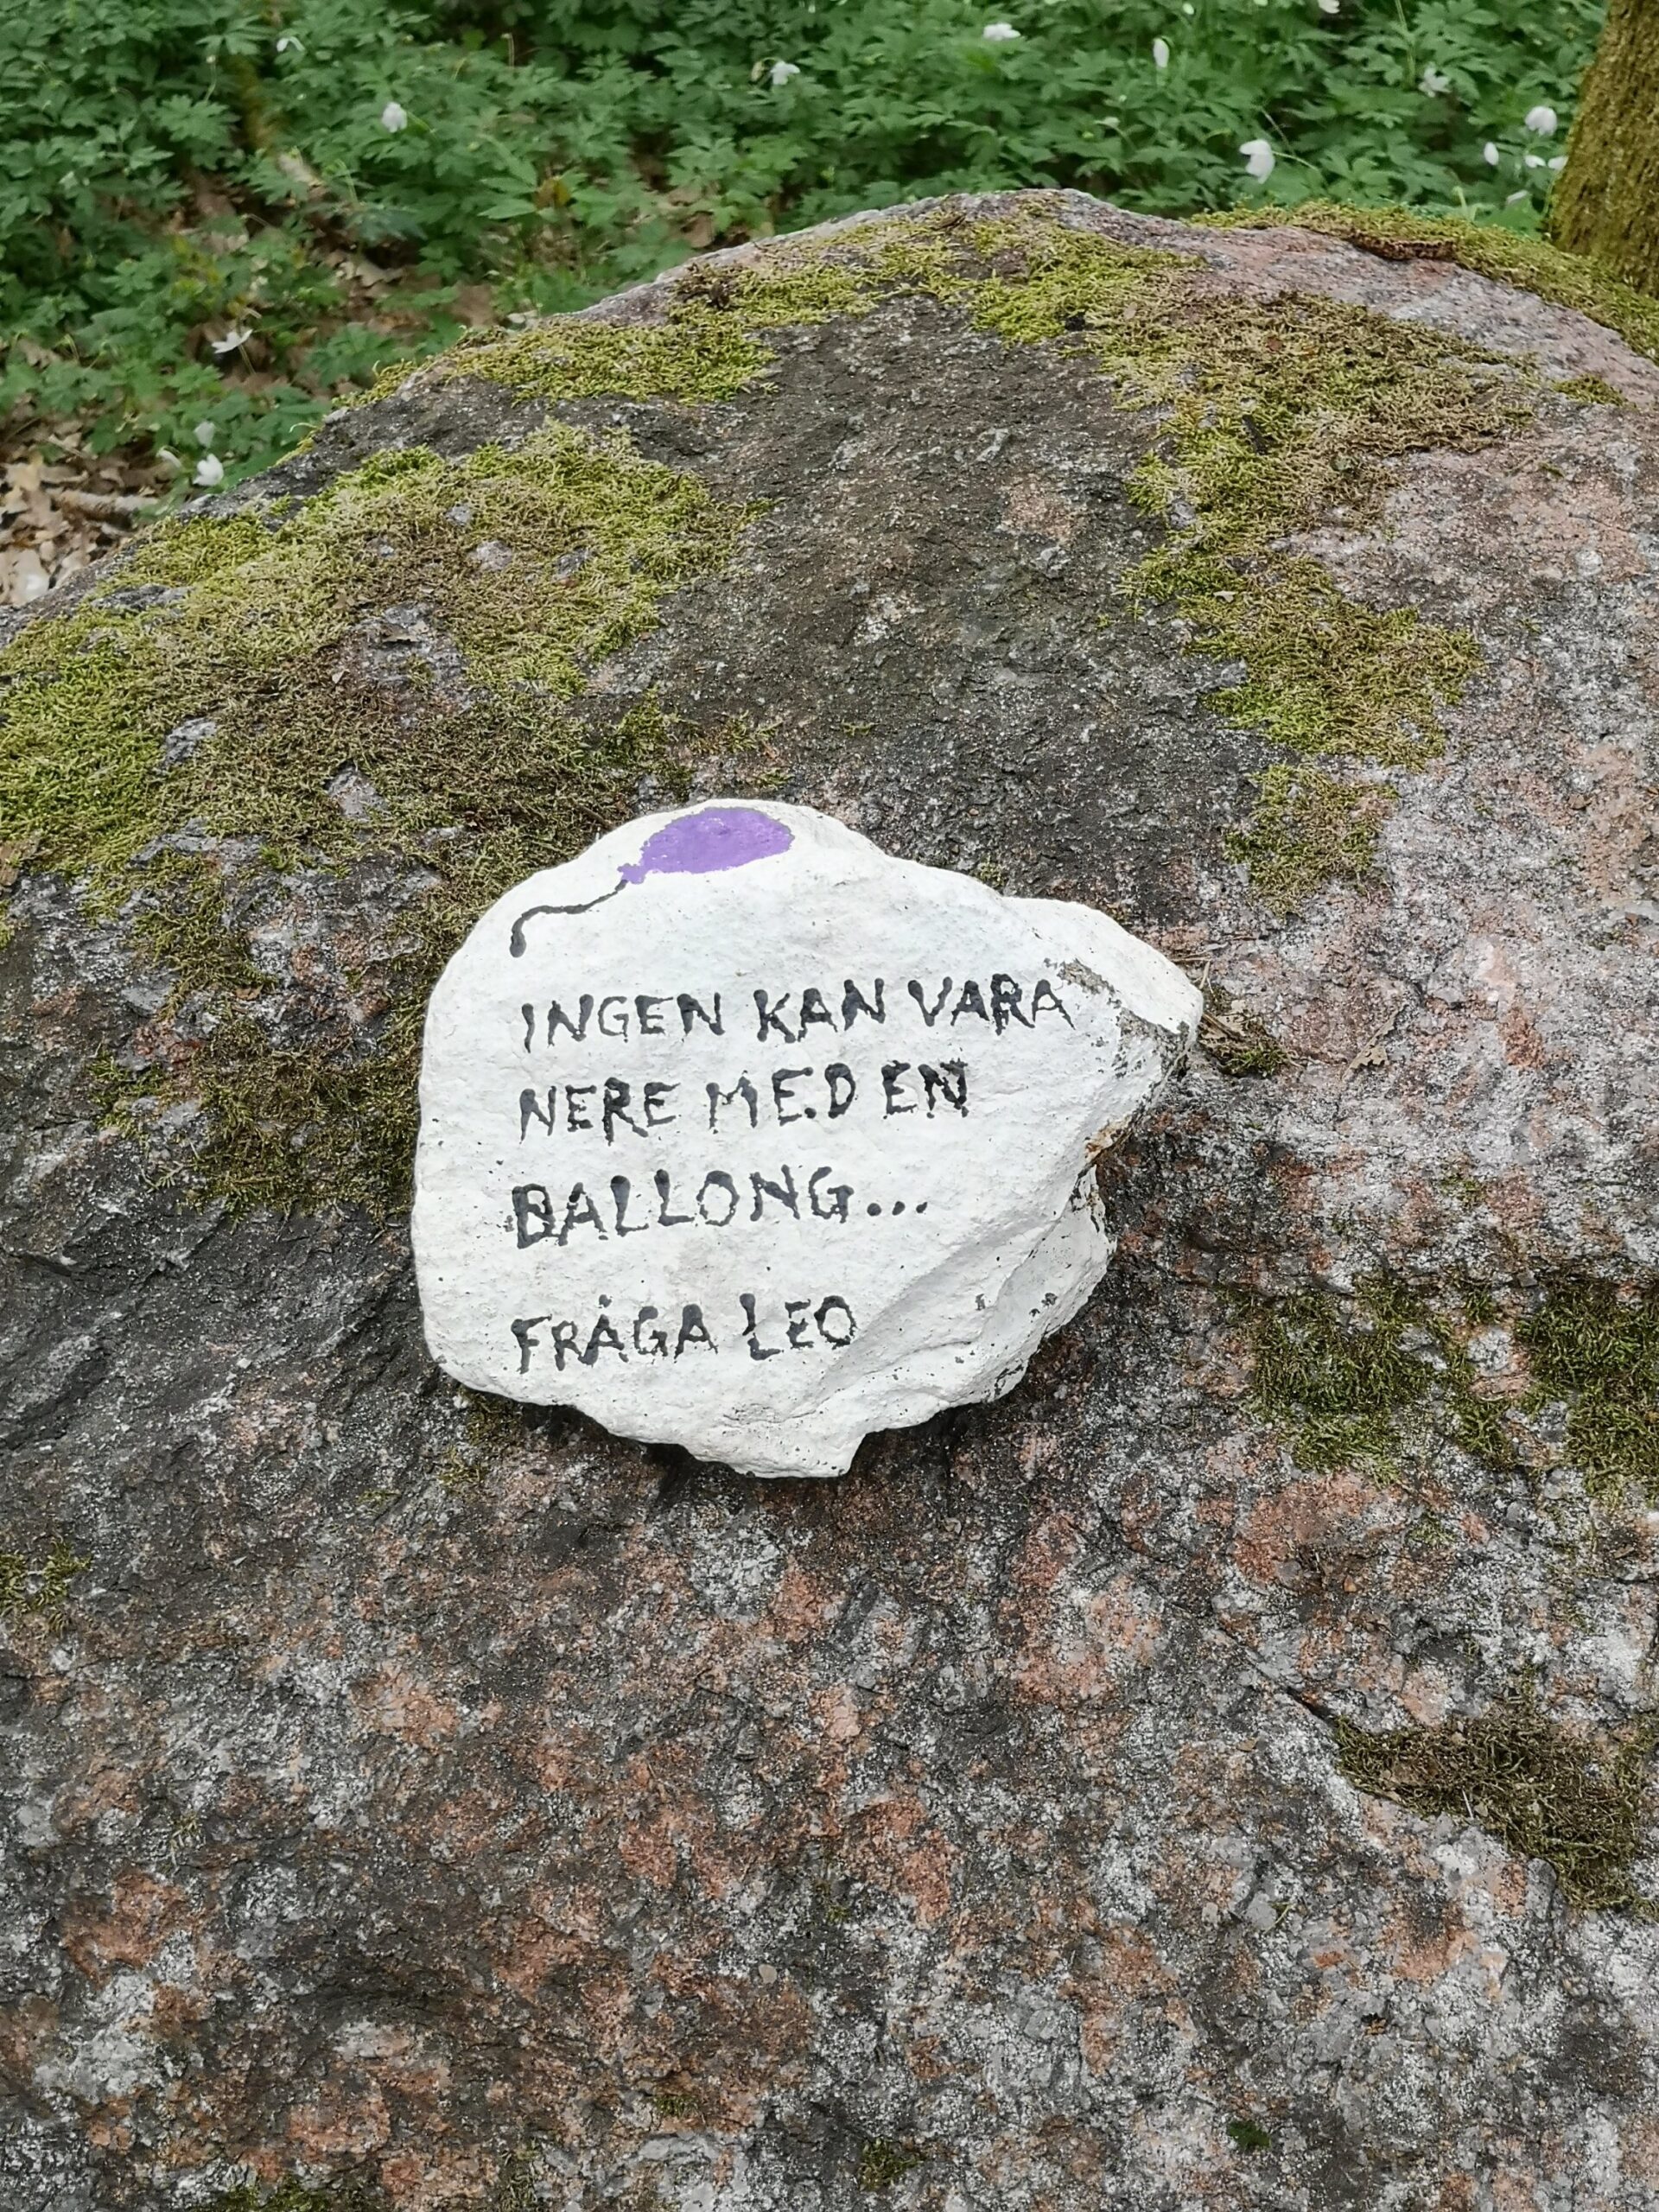 INGEN KAN VARA
NERE MED EN
BALLONG...
FRÅGA LEO